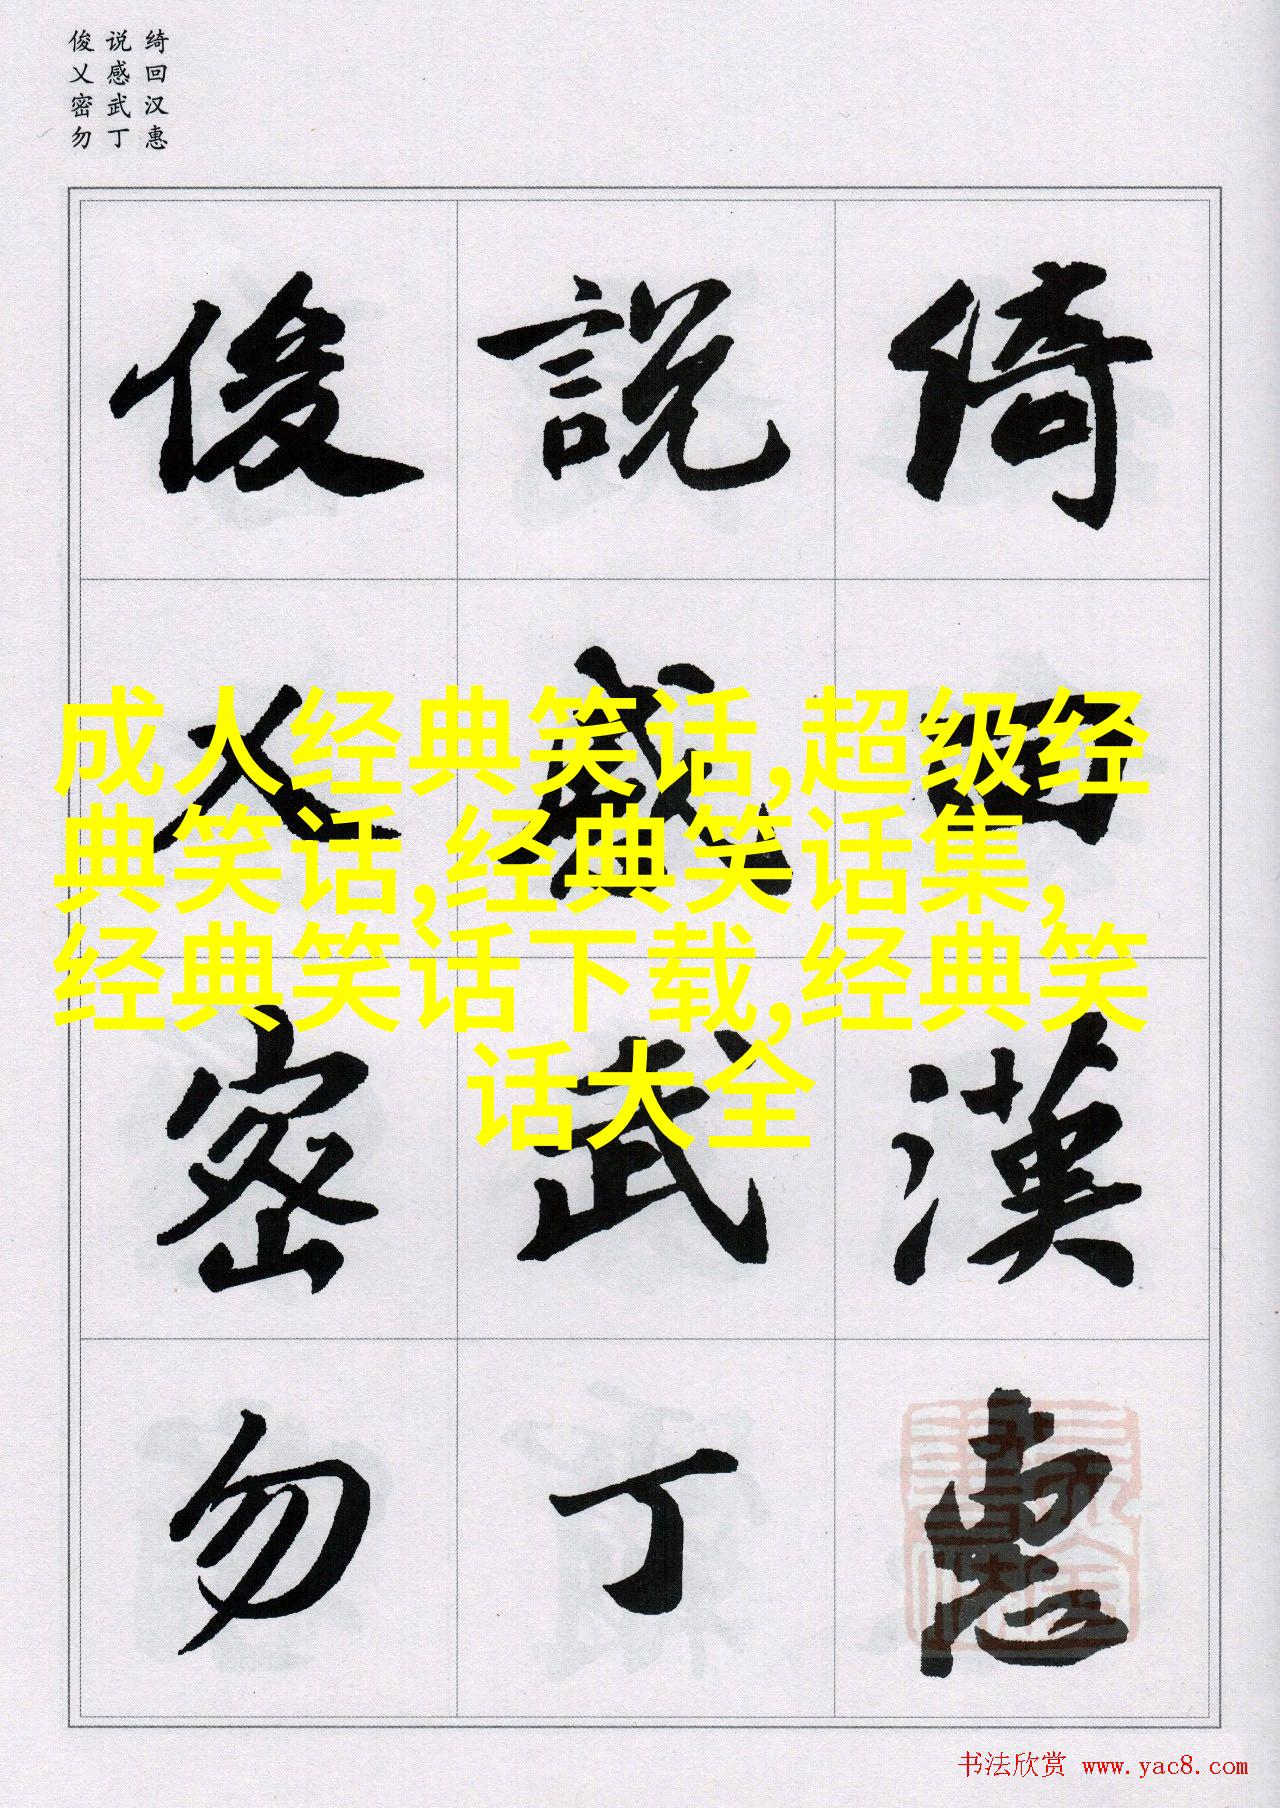 俊 说 绮
乂 感 回
密 武 汉
勿 丁 惠
俊 說 綺
乂 感 回
密 武 漢
勿 丁 惠
成人经典笑话,超级经
典笑话,经典笑话集,
经典笑话下载,经典笑
话大全
书法欣赏 www.yac8.com